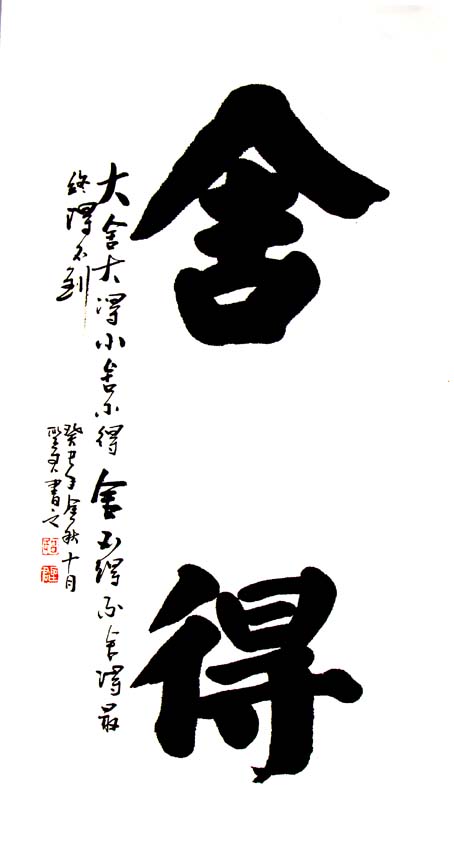 舍
得
大舍大得小舍小得舍不得不舍得最
终得不到
癸巳年金秋十月
圣君書之